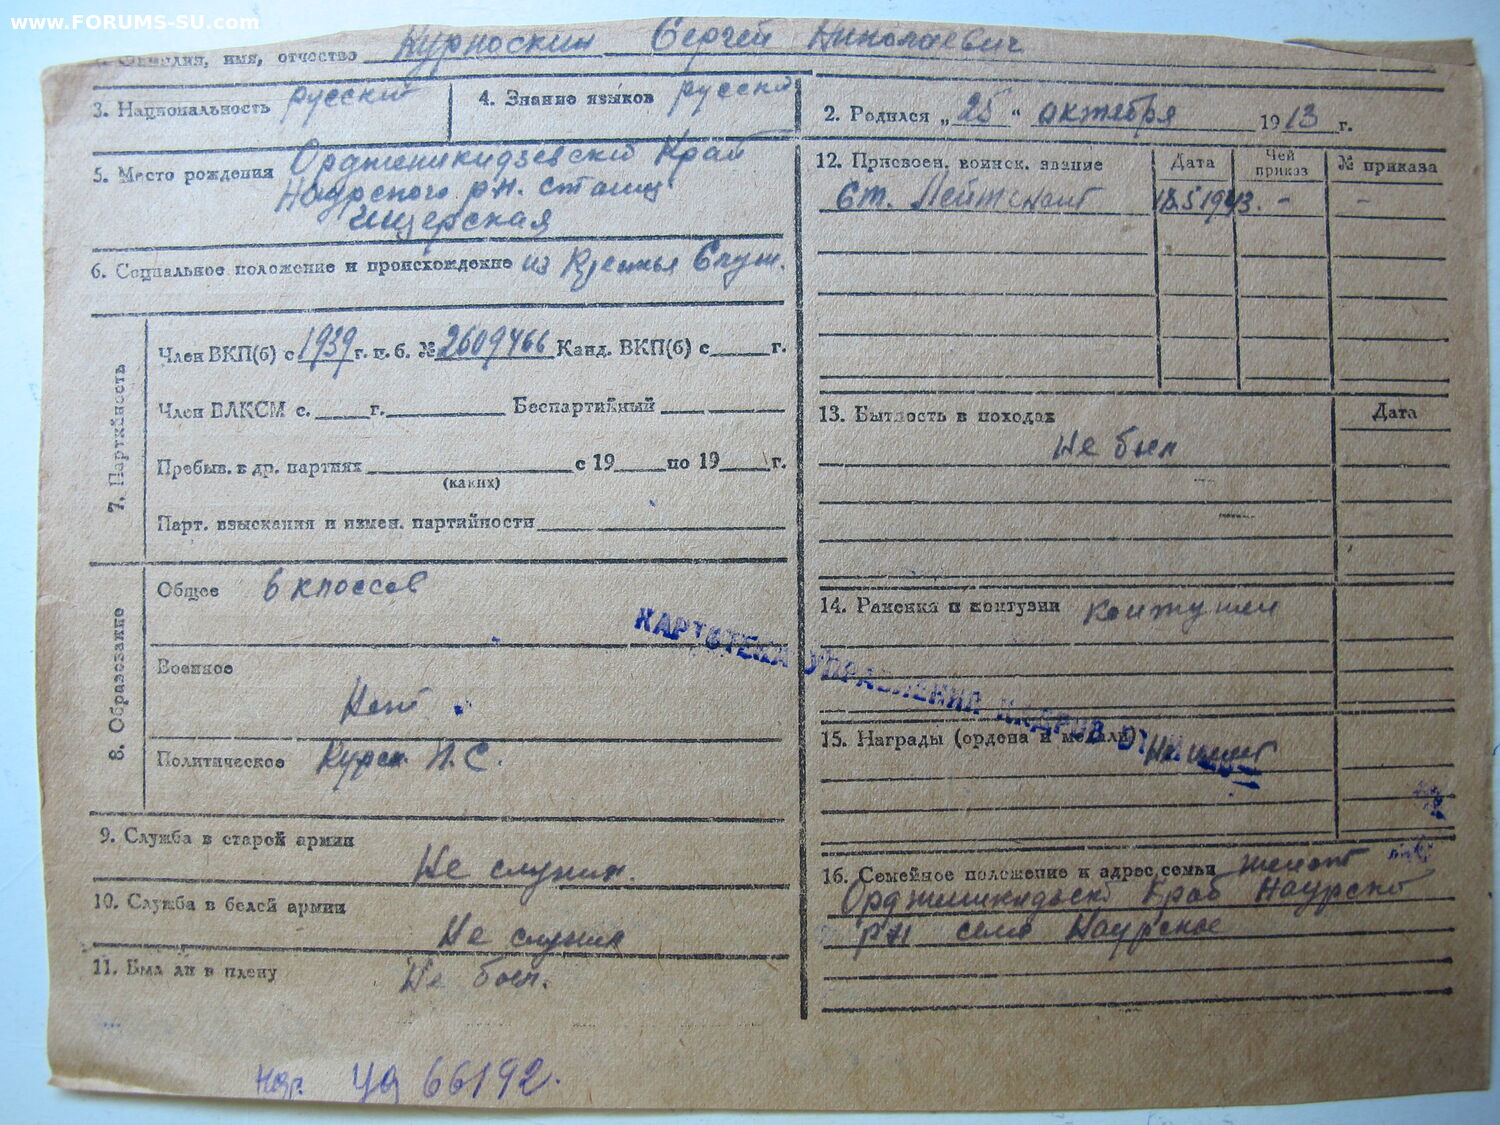 www.FORUMS-SU.com
фамилия, имя, отчество Курноскин Сергей Николаевич
3. Национальность русский
4. Знание языков русский
2. Родился „25“ октября 1913 г.
5. Место рождения Орджоникидзевский Край
Наурского р.н. станиц
Ищерская
6. Социальное положение и происхождение из Крестья Служ.
7. Партийность
Член ВКП(б) с 1939 г. п. б. № 2609466 Канд. ВКП(б) с г.
Член ВЛКСМ с. г. Беспартийный
Пребыв. в др. партиях с 19 по 19 г.
(каких)
Парт. взыскания и измен. партийности
8. Образование
Общее 6 классов
Военное
Нет
Политическое Курсы П.С.
9. Служба в старой армии
Не служил.
10. Служба в белой армии
Не служил
11. Был ли в плену Не был.
12. Присвоен. воинск. звание Дата Чей приказ № приказа
Ст. Лейтенант 18.5 1943. - -
13. Бытность в походах Дата
Не был
14. Ранения и контузии контужен
КАРТОТЕКА УПРАВЛЕНИЯ КАДРОВ
15. Награды (ордена и медали) Не имеет
16. Семейное положение и адрес семьи женат
Орджоникидзевский Край Наурский
р-н село Наурское
УД 66192.